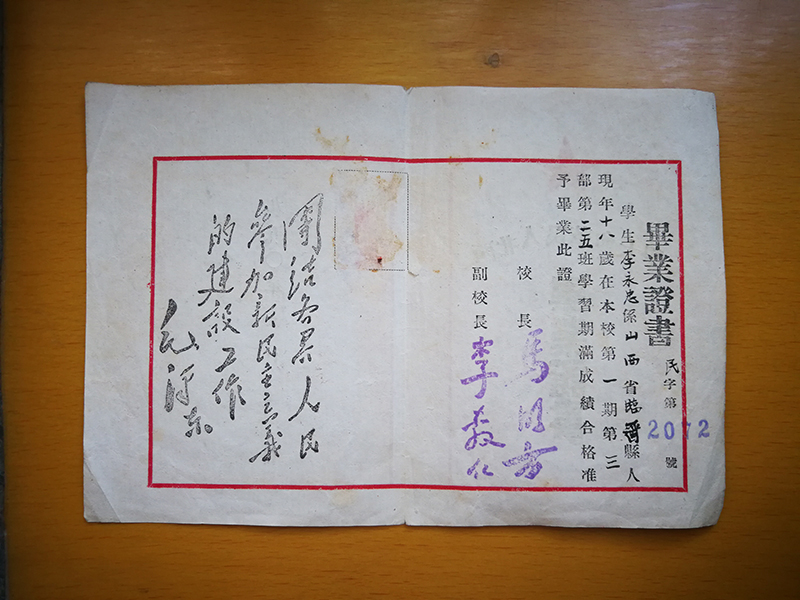 畢業證書
民字第2072號
學生李永忠係山西省臨晉縣人
現年十八歲在本校第一期第三
部第二五班學習期滿成績合格准
予畢業此證
校長 馬明方
副校長 李敷仁
團結各界人民
參加新民主主義
的建設工作
毛澤东